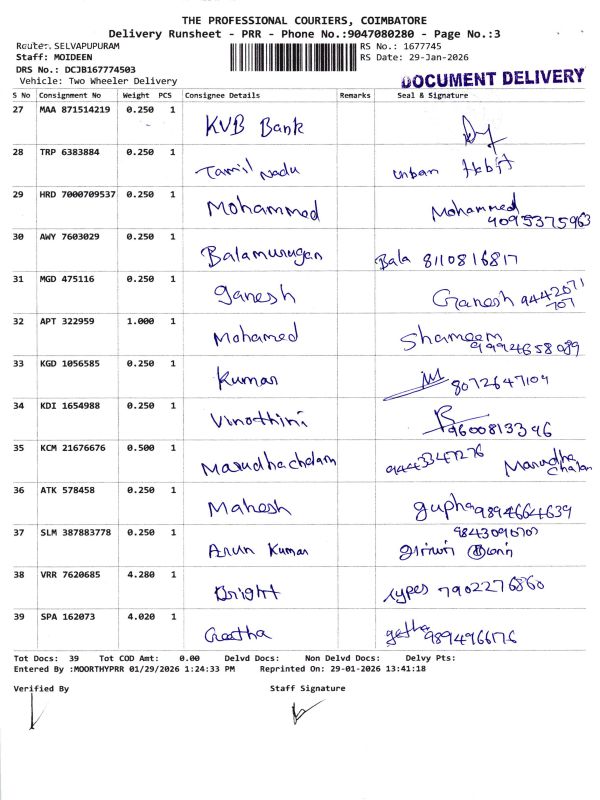 THE PROFESSIONAL COURIERS, COIMBATORE
Delivery Runsheet - PRR - Phone No.:9047080280 - Page No.:3
Router. SELVAPUPURAM
RS No.: 1677745
Staff: MOIDEEN
RS Date: 29-Jan-2026
DRS No.: DCJB167774503
Vehicle: Two Wheeler Delivery
DOCUMENT DELIVERY
S No Consignment No Weight PCS Consignee Details Remarks Seal & Signature
27 MAA 871514219 0.250 1 KVB Bank
28 TRP 6383884 0.250 1 Tamil Nadu urban
29 HRD 7000709537 0.250 1 Mohammed Mohammed
4095375963
30 AWY 7603029 0.250 1 Balamurugan Bala 8110816817
31 MGD 475116 0.250 1 Ganesh Ganesh
32 APT 322959 1.000 1 Mohamed Shameem
9994658089
33 KGD 1056585 0.250 1 Kumar 8072647104
34 KDI 1654988 0.250 1 Vinothini 9600813396
35 KCM 21676676 0.500 1 Marudhachalam 9443347276 Marudha
chalam
36 ATK 578458 0.250 1 Mahesh gupha 9894664639
37 SLM 387883778 0.250 1 Arun Kumar
38 VRR 7620685 4.280 1 Bright types 7902276860
39 SPA 162073 4.020 1 Geetha getha
Tot Docs: 39 Tot COD Amt: 0.00 Delvd Docs: Non Delvd Docs: Delvy Pts:
Entered By :MOORTHYPRR 01/29/2026 1:24:33 PM Reprinted On: 29-01-2026 13:41:18
Verified By Staff Signature